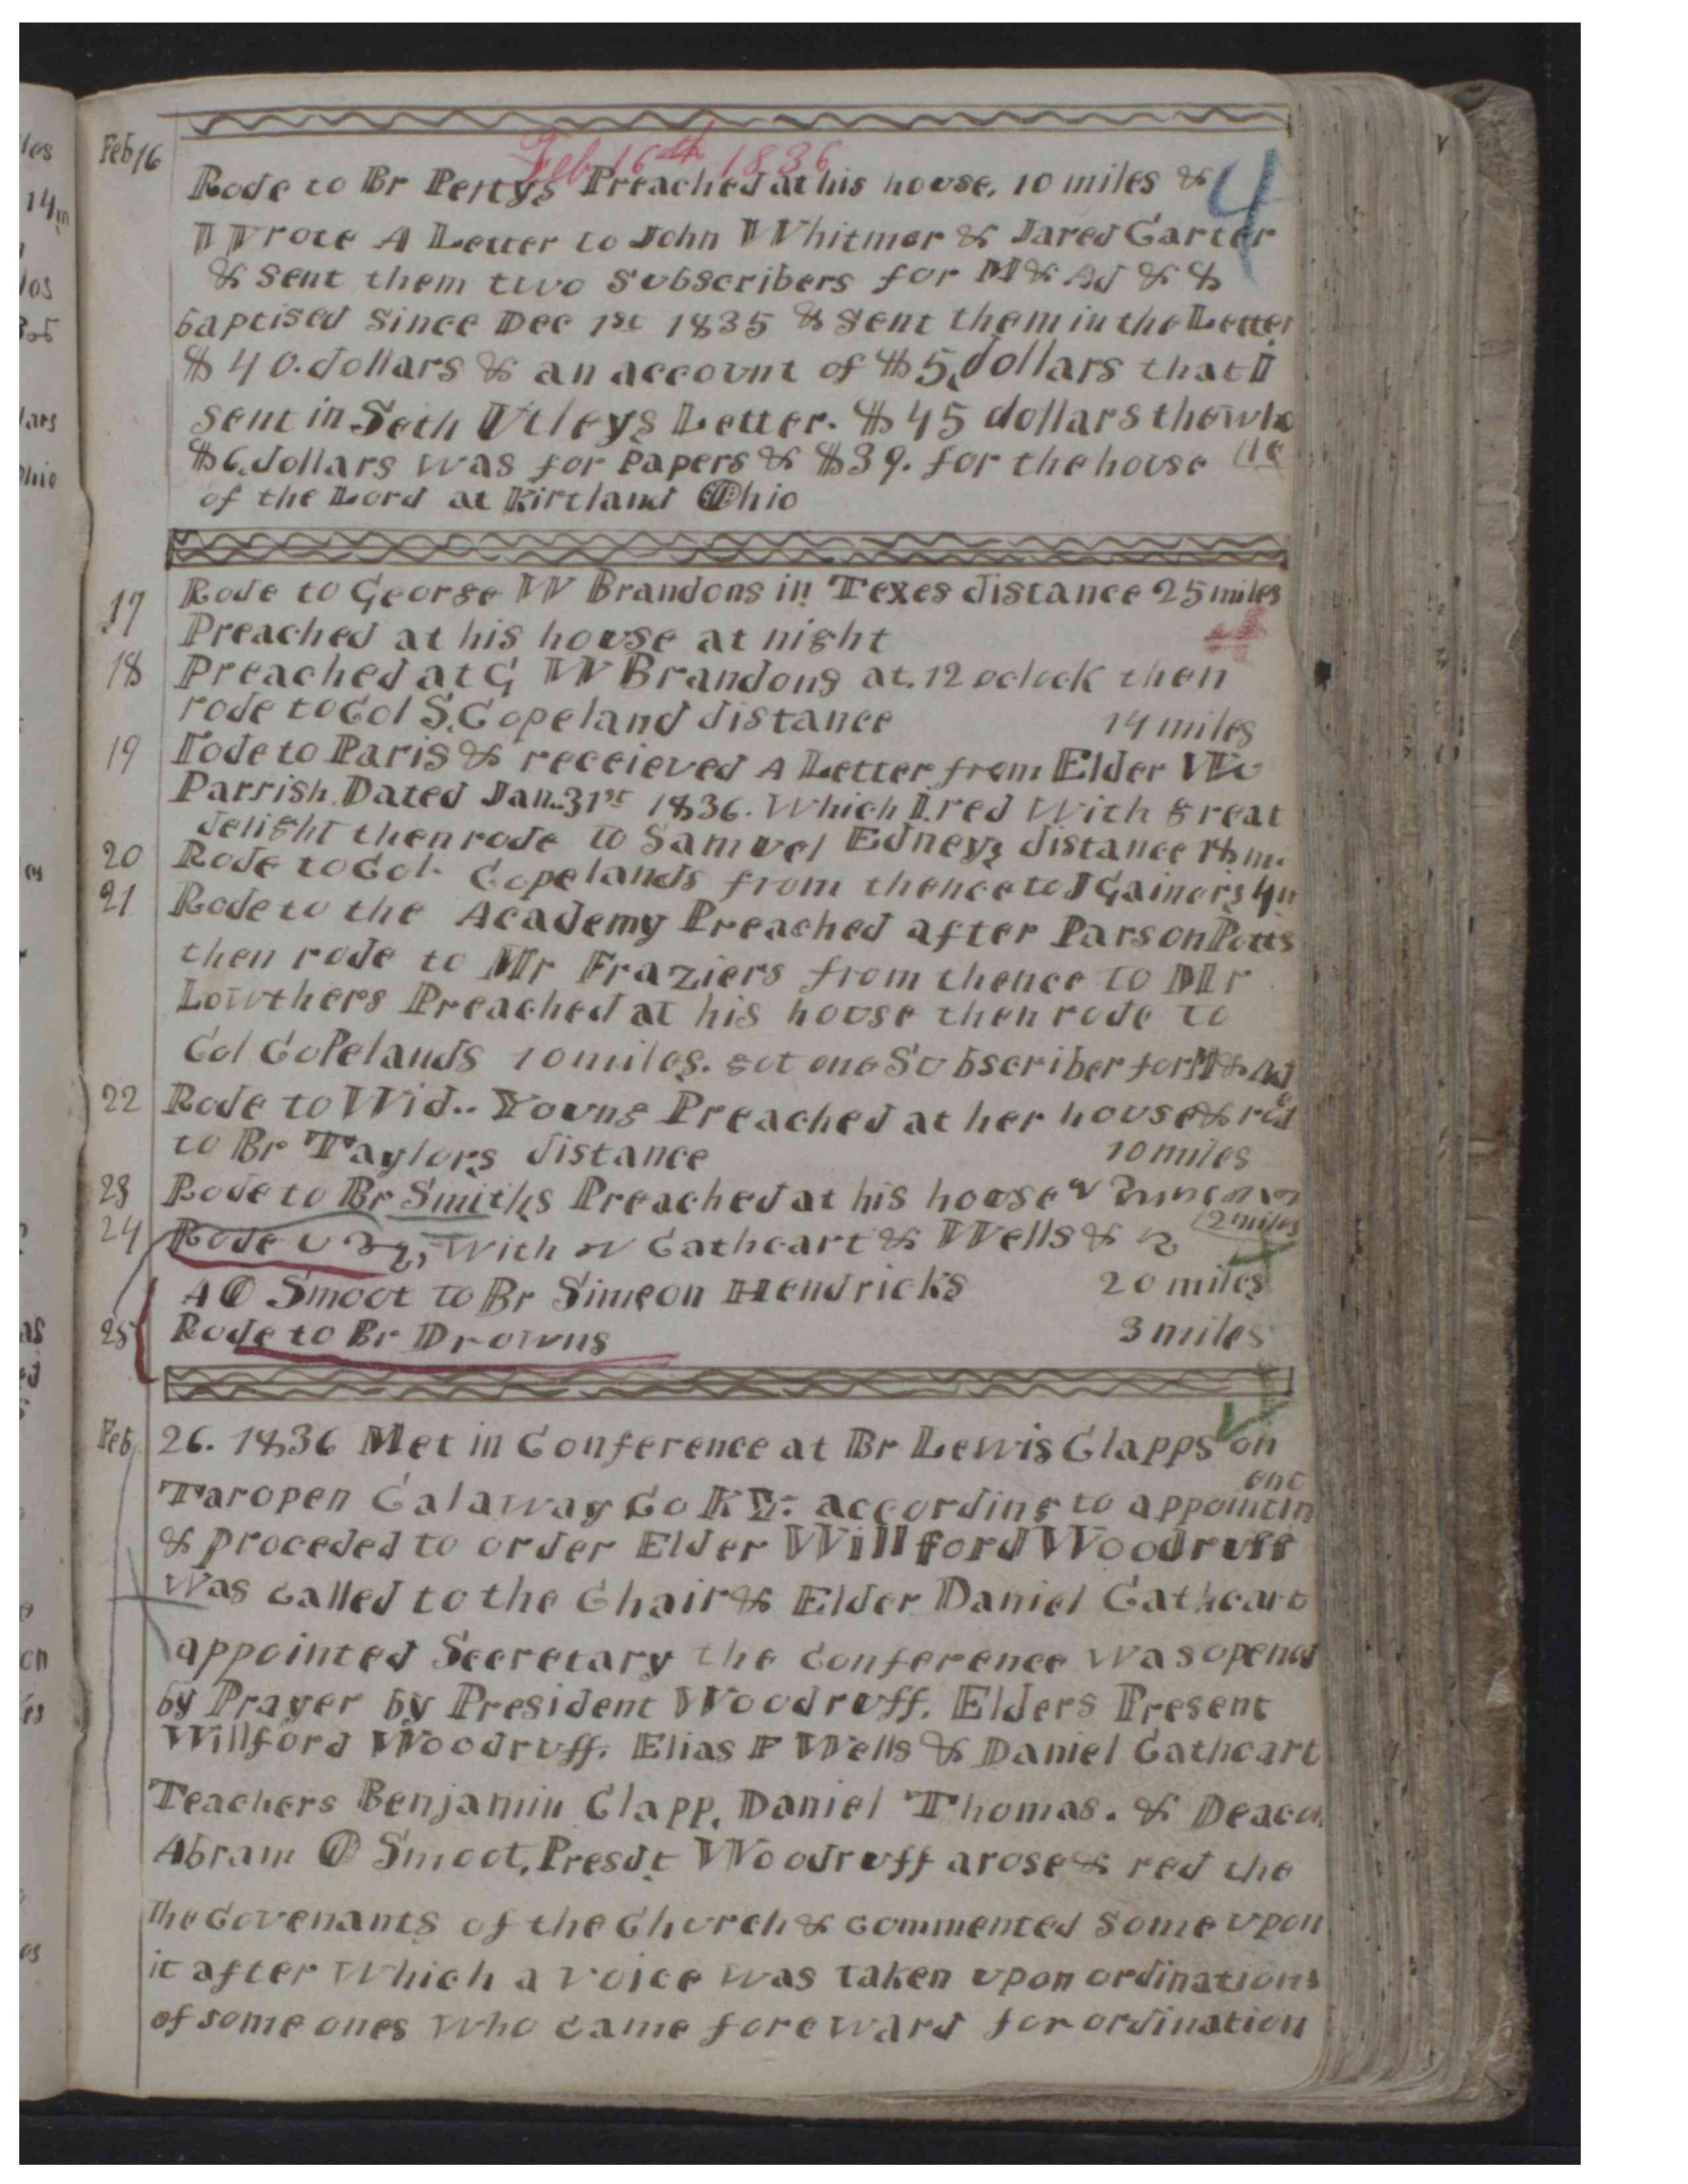 Feb 16th 1836
Feb 16
Rode to Br Pettys Preached at his house. 10 miles & 4
Wrote A Letter to John Whitmer & Jared Carter
& sent them two Subscribers for M & Ad & &
baptised since Dec 1st 1835 & sent them in the Letter
$40. dollars & an account of $5 dollars that I
sent in Seth Utleys Letter. $45 dollars the who
$6 dollars was for Papers & $39. for the house (le
of the Lord at Kirtland Ohio
17 Rode to George W Brandons in Texes distance 25 miles
Preached at his house at night
18 Preached at G W Brandons at. 12 oclock then
rode to Col S. Copeland distance 14 miles
19 rode to Paris & receieved A Letter from Elder W
Parrish Dated Jan. 31st 1836. Which I red With great
delight then rode to Samuel Edneys distance 18 m.
20 Rode to Col. Copelands from thence to J Gainors 4 m
21 Rode to the Academy Preached after Parson Potts
then rode to Mr Fraziers from thence to Mr
Lowthers Preached at his house then rode to
Col CoPelands 10 miles. got one Subscriber for M & Ad
22 Rode to Wid.. Young Preached at her house & rod
to Br Taylors distance 10 miles
23 Rode to Br Smiths Preached at his house &
(2 miles
24 Rode With Cathcart & Wells &
A O Smoot to Br Simeon Hendricks 20 miles
25 Rode to Br Drowns 3 miles
Feb 26. 1836 Met in Conference at Br Lewis Clapps on
Taropen Calaway Co KY. according to appointm
ent
& proceded to order Elder Willford Woodruff
Was called to the Chair & Elder Daniel Cathcart
appointed Secretary the conference was opened
by Prayer by President Woodruff. Elders Present
Willford Woodruff. Elias F Wells & Daniel Cathcart
Teachers Benjamin Clapp, Daniel Thomas. & Deacon
Abram O Smoot, Presdt Woodruff arose & red the
The Covenants of the Church & commented some upon
it after Which a voice was taken upon ordinations
of some ones Who came foreward for ordination